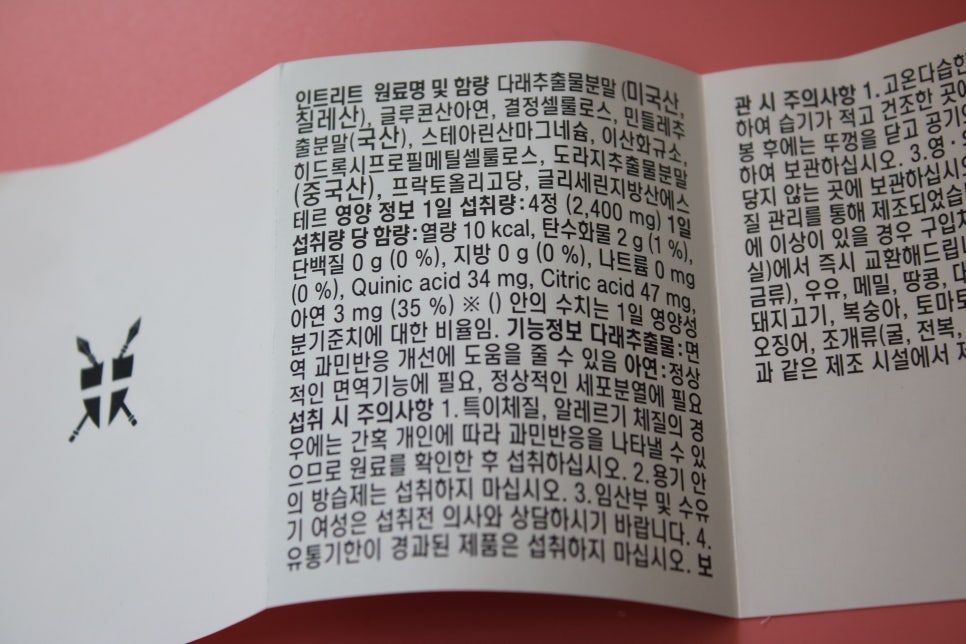 인트리트 원료명 및 함량 다래추출물분말 (미국산,
칠레산), 글루콘산아연, 결정셀룰로스, 민들레추
출분말(국산), 스테아린산마그네슘, 이산화규소,
히드록시프로필메틸셀룰로스, 도라지추출물분말
(중국산), 프락토올리고당, 글리세린지방산에스
테르 영양 정보 1일 섭취량:4정 (2,400 mg) 1일
섭취량 당 함량:열량 10 kcal, 탄수화물 2 g (1 %),
단백질 0 g (0 %), 지방 0 g (0 %), 나트륨 0 mg
(0 %), Quinic acid 34 mg, Citric acid 47 mg,
아연 3 mg (35 %) ※ () 안의 수치는 1일 영양성
분기준치에 대한 비율임. 기능정보 다래추출물:면
역 과민반응 개선에 도움을 줄 수 있음 아연:정상
적인 면역기능에 필요, 정상적인 세포분열에 필요
섭취 시 주의사항 1. 특이체질, 알레르기 체질의 경
우에는 간혹 개인에 따라 과민반응을 나타낼 수 있
으므로 원료를 확인한 후 섭취하십시오. 2. 용기 안
의 방습제는 섭취하지 마십시오. 3. 임산부 및 수유
기 여성은 섭취전 의사와 상담하시기 바랍니다. 4.
유통기한이 경과된 제품은 섭취하지 마십시오. 보
관 시 주의사항 1. 고온다습한
하여 습기가 적고 건조한 곳에
봉 후에는 뚜껑을 닫고 공기와
하여 보관하십시오. 3. 영·
닿지 않는 곳에 보관하십시오
질 관리를 통해 제조되었습
에 이상이 있을 경우 구입처
실)에서 즉시 교환해드립니
금류), 우유, 메밀, 땅콩, 대
돼지고기, 복숭아, 토마토
오징어, 조개류(굴, 전복,
과 같은 제조 시설에서 제